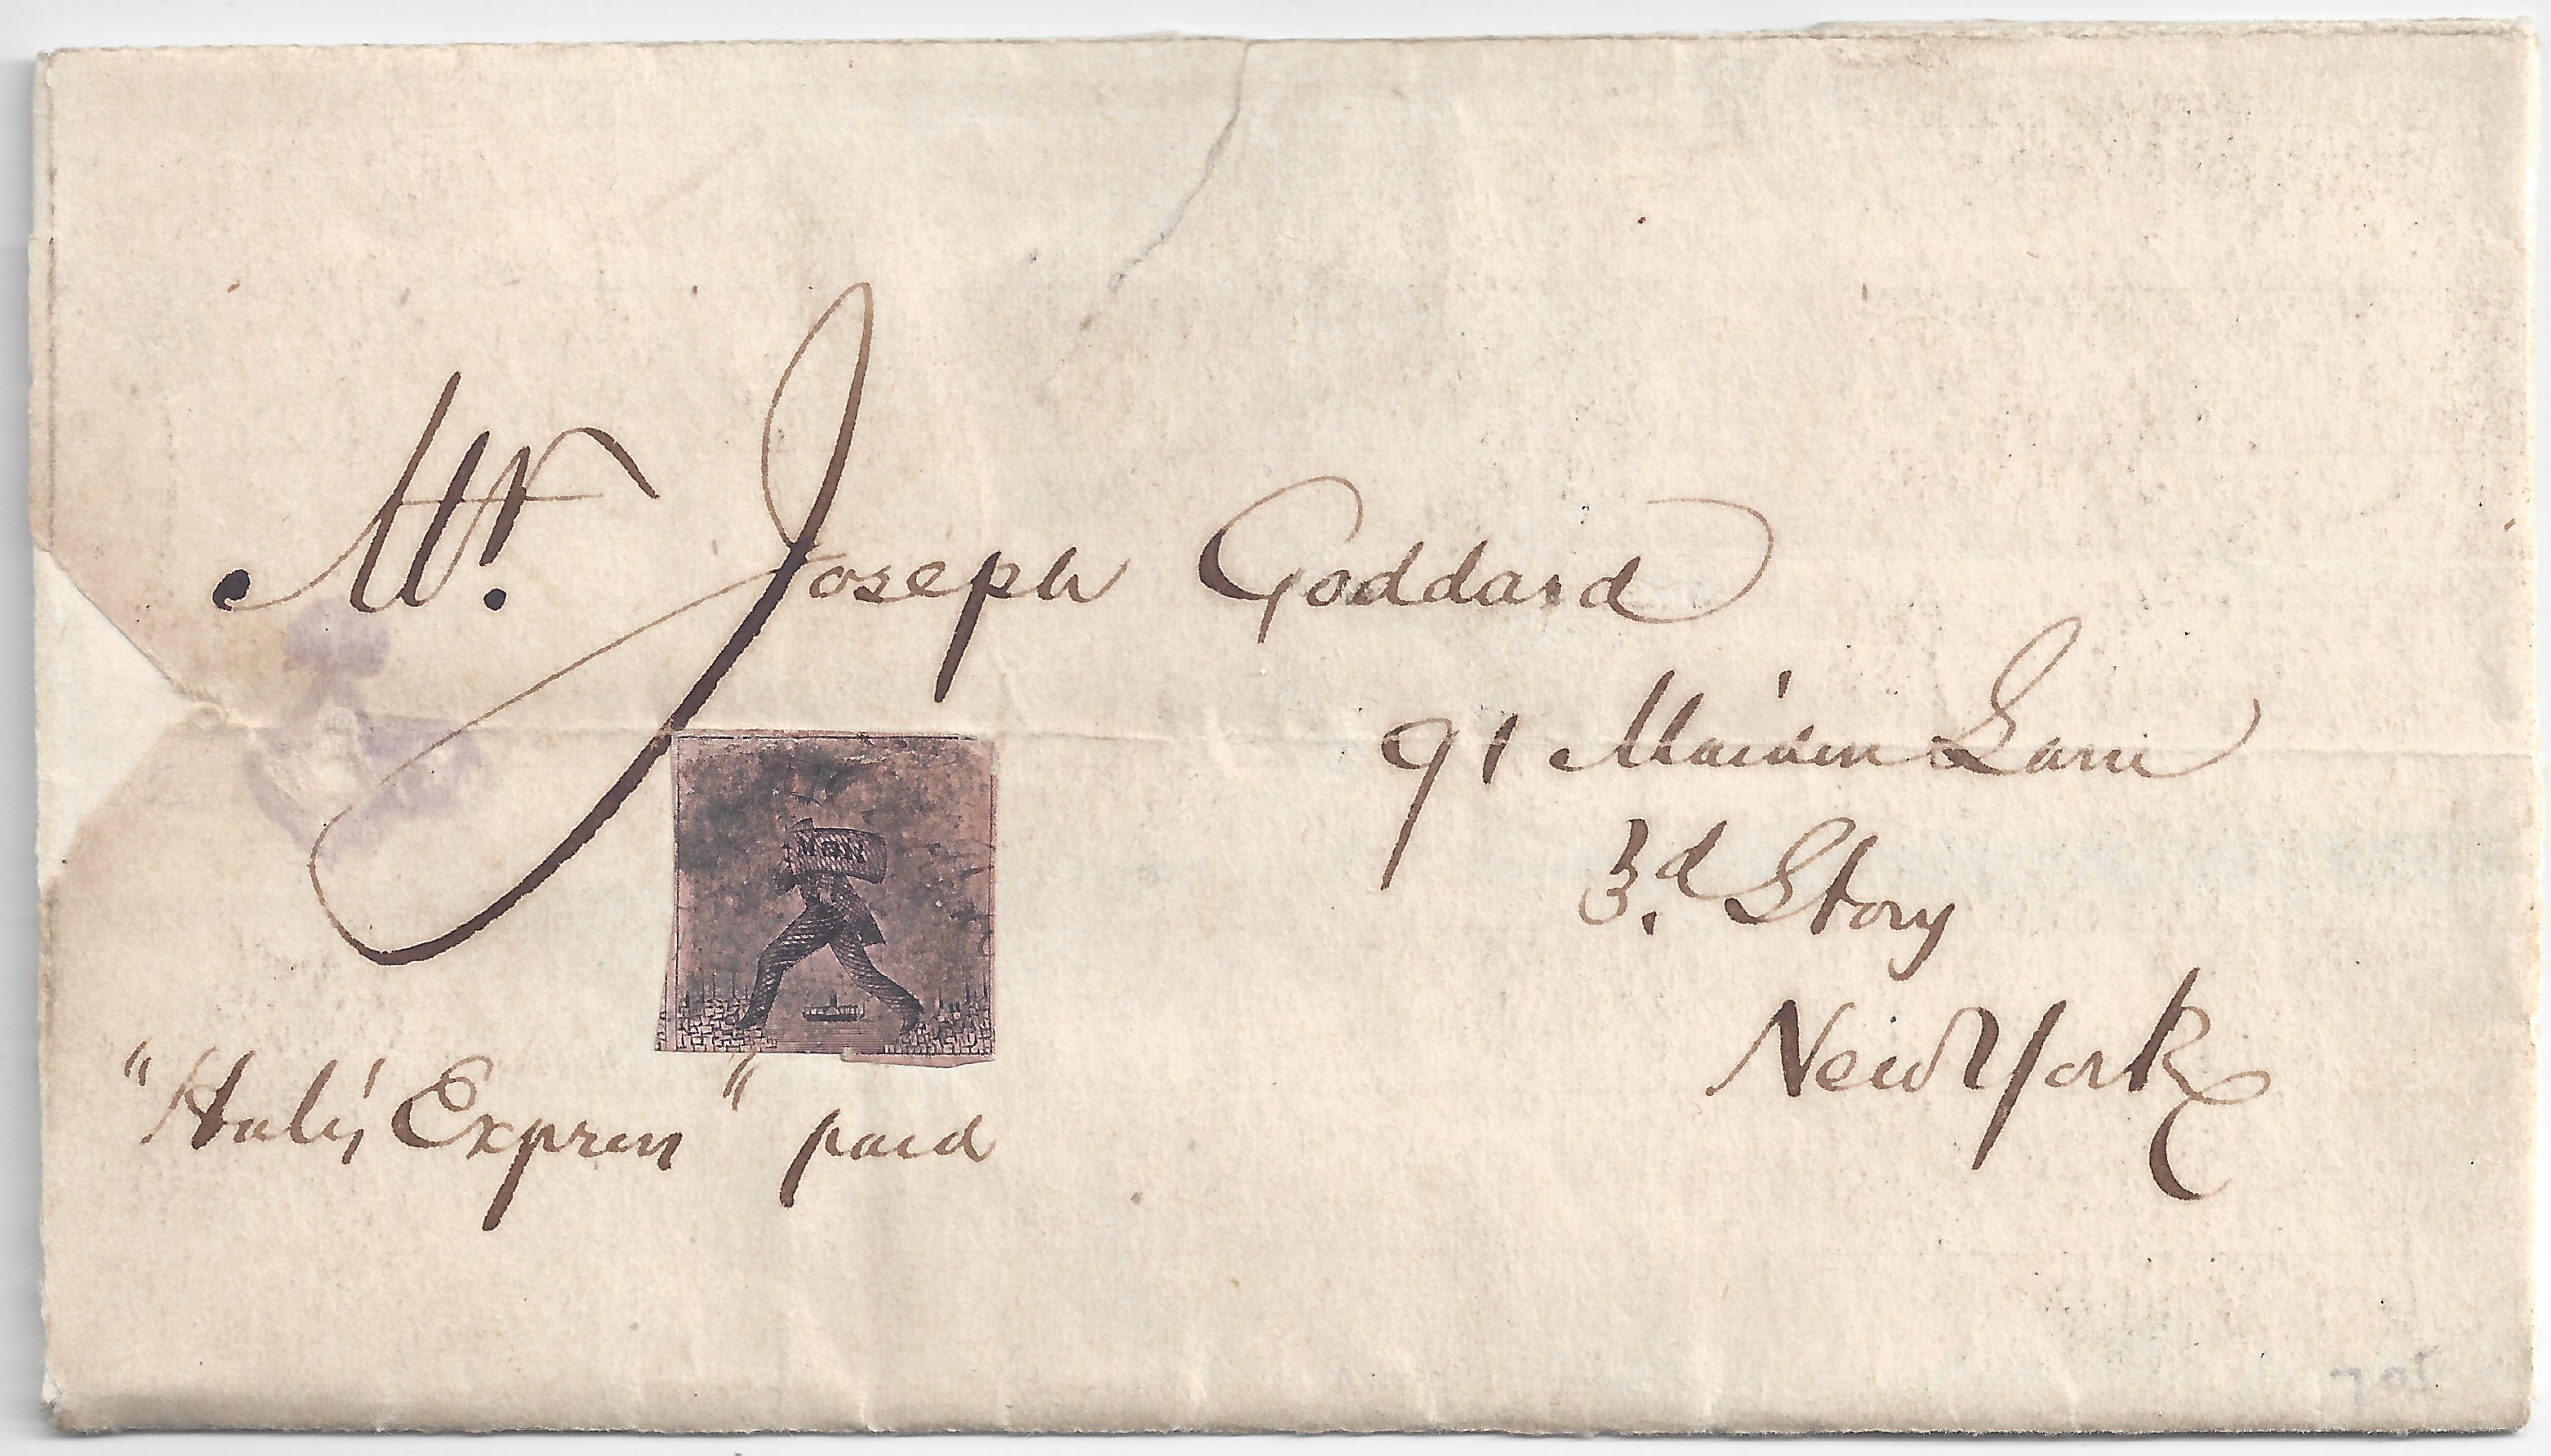 Mr. Joseph Goddard
91 Maiden Lane
3.d Story
New York
Mail
"Hale's Express" paid